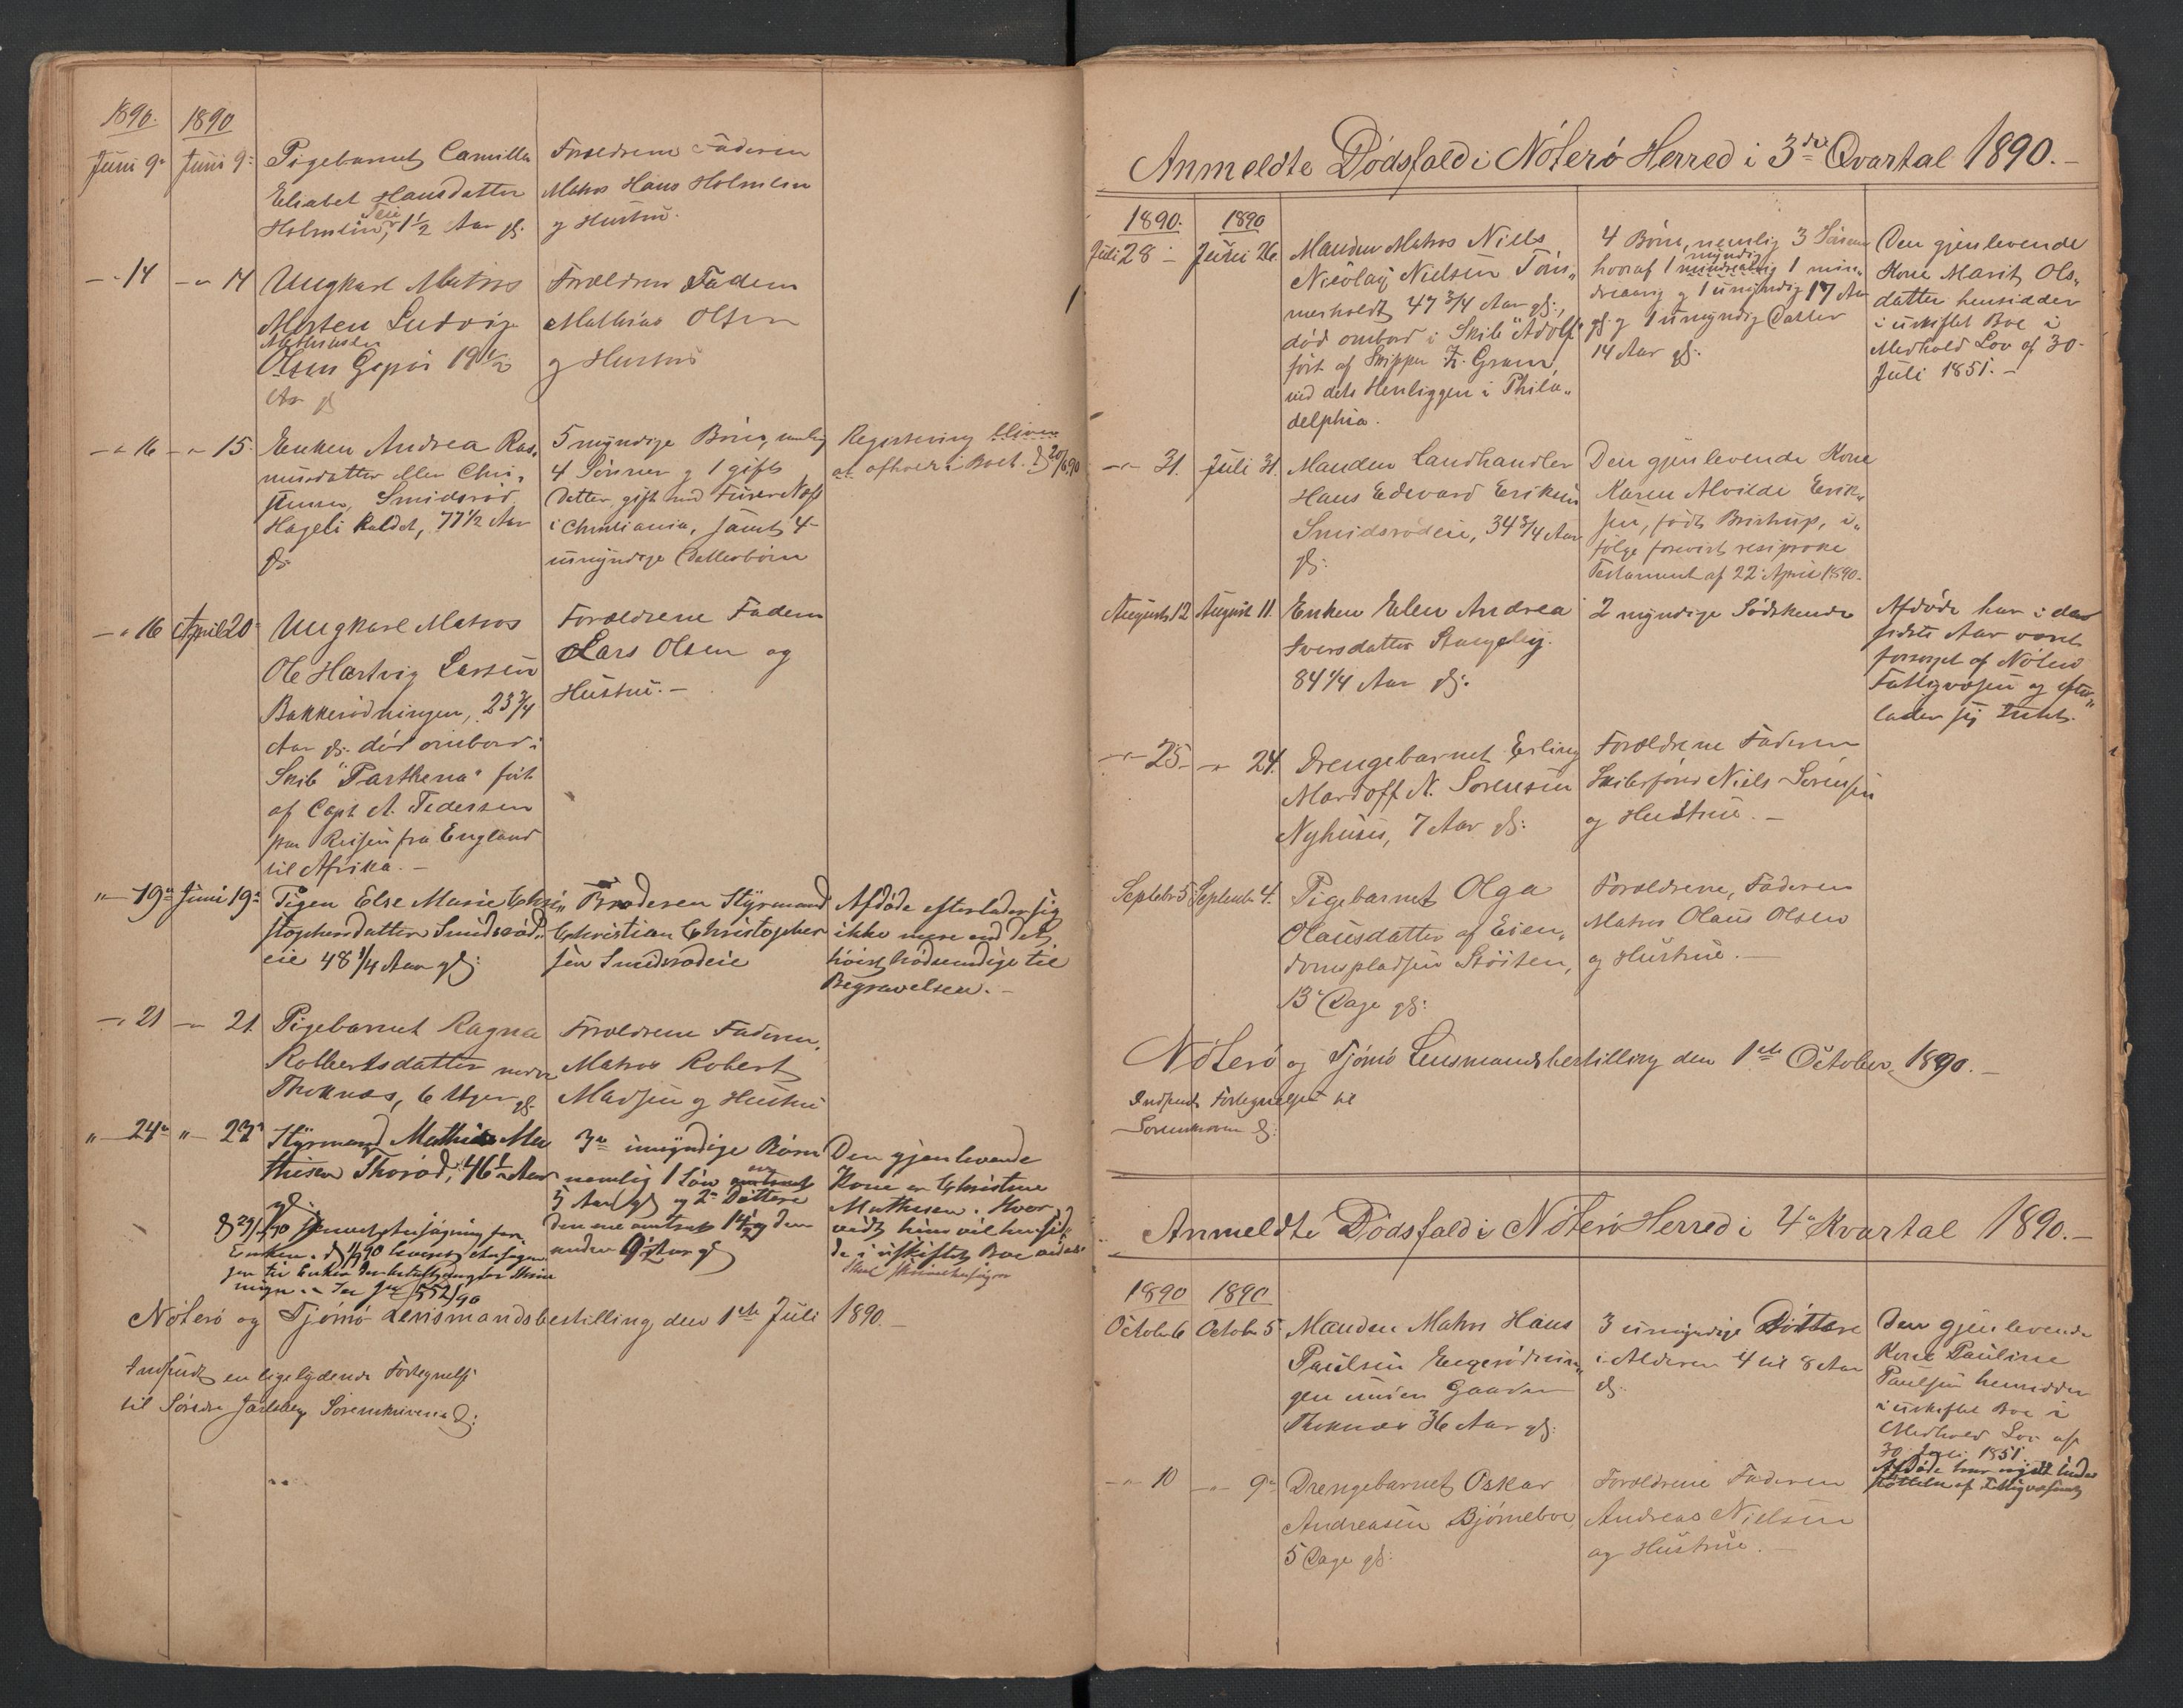 1890.
1890
Juni 9
Juni 9
Pigebarnet Camilla
Elisabet Hansdatter
Holmen, Teie
1 1/2 Aar gl.
Forældrene Faderen
Matros Hans Holmlin
og Hustru.
14
14
Ungkarl Matros
Morten Ludvig
Mathiassen
Olsen Gipø 19 1/2
Aar gl
Forældrene Faderen
Mathias Olsen
og Hustru
16
15
Enken Andrea Ras-
musdatter eller Chri-
stensen, Smidsrød
Hageli kaldet, 77 1/2 Aar
gl.
5 myndige Børn, nemlig
4 Sønner og 1 gift
Datter gift med
i Christiania, samt 4
umyndige Datterbørn
Registrering bliver
at afholde i Boet. 20/6 90
16
April 20
Ungkarl Matros
Ole Hartvig Larsen
Bakkerødningen, 23 3/4
Aar gl. død ombord i
Skib "Parthena" ført
af Capt A. Pedersen
paa Reisen fra England
til Afrika.-
Forældrene Faderen
Lars Olsen og
Hustru.-
19
Juni 19
Pigen Else Marie Chri-
stophersdatter Smidsrød-
eie 48 1/4 Aar gl:
Broderen Styrmand
Christian Christopher
sen Smidsrødeie
Afdøde efterlader sig
ikke mere end det
høist nødvendige til
Begravelsen.-
21
21
Pigebarnet Ragna
Robbertsdatter nedre
Thoknæs, 6 Uger gl.
Forældrene Faderen,
Matros Robert
Madsen og Hustru
24
23
Styrmand Mathias Ma
thisen Thorød, 46 1/2 Aar
gl.
Enken.
3 umyndige Børn
nemlig 1 Søn
5 Aar gl og 2 Døttere
den ene omtrent 14 1/2 og den
anden 9 1/2 Aar gl
Den gjenlevende
Kone er Christine
Mathisen. Hvor-
vidt hun vil hensid-
de i uskiftet Boe
Nøterø og Tjømø Lensmandsbestilling den 1ste Juli 1890.-
Indsendt en ligelydende Fortegnelse
til Søndre Jarlsberg Sorenskriveri
Anmeldte Dødsfald i Nøterø Herred i 3die Qvartal 1890.-
1890.
1890
Juli 28
Juni 26
Manden Matros Niels
Nicolay Nielsen Tøns-
merholdt 47 3/4 Aar gl:,
død ombord i Skib "Adolf"
ført af Skipper Gram,
ved dets Henliggen i Phila-
delphia.
4 Børn, nemlig 3 Sønner
hvoraf 1 myndig 1 min-
dreaarig og 1 umyndig 17 Aar
gl: og 1 umyndig Datter
14 Aar gl:
Den gjenlevende
Kone Marit Ols-
datter hensidder
i uskiftet Boe i
Medhold Lov af 30-
Juli 1851.-
31.
Juli 31.
Manden Landhandler
Hans Edevard Eriksen
Smidsrødeie, 34 3/4 Aar
gl:
Den gjenlevende Kone
Karen Alvilde Erik-
sen, født Bristrup, i-
følge forevist resiproke
Testament af 22 April 1890.
August 12
August 11.
Enken Elen Andrea
Iversdatter Stangeby.
84 1/4 Aar gl.
2 myndige Sødskende
Afdøde har i de
sidste Aar været
forsørget af Nøterø
Fattigvæsen og efter-
lader sig Intet.
25
24.
Drengebarnet Erling
Mardoff N. Sørensen
Nyhuus, 7 Aar gl:
Forældrene Faderen
Skibsfører Niels Sørensen
og Hustrue.-
Septebr 5
September 4.
Pigebarnet Olga
Olausdatter af Eien-
domspladsen Støiten,
13 Dage gl:
Forældrene, Faderen
Matros Olaus Olsen
og Hustrue.-
Nøterø og Tjømø Lensmandsbestilling den 1ste October 1890.-
Indsendt Fortegnelse til
Sorenskriveren
Anmeldte Dødsfald i Nøterø Herred i 4 Kvartal 1890.-
1890
1890
October 6
October 5
Manden Matros Hans
Paulsen Engerødnin-
gen under Gaarden
Thoknæs 36 Aar gl:
3 umyndige Døttere
i Alderen 4 til 8 Aar
gl.
Den gjenlevende
Kone Pauline
Paulsen hensidder
i uskiftet Boe i
Medhold Lov af
30 Juli 1851
Afdøde har nydt Under
støttelse af Fattigvæsenet
10
9
Drengebarnet Oskar
Andreasen Bjørnebo,
5 Dage gl:
Forældrene Faderen
Andreas Nielsen
og Hustrue.-